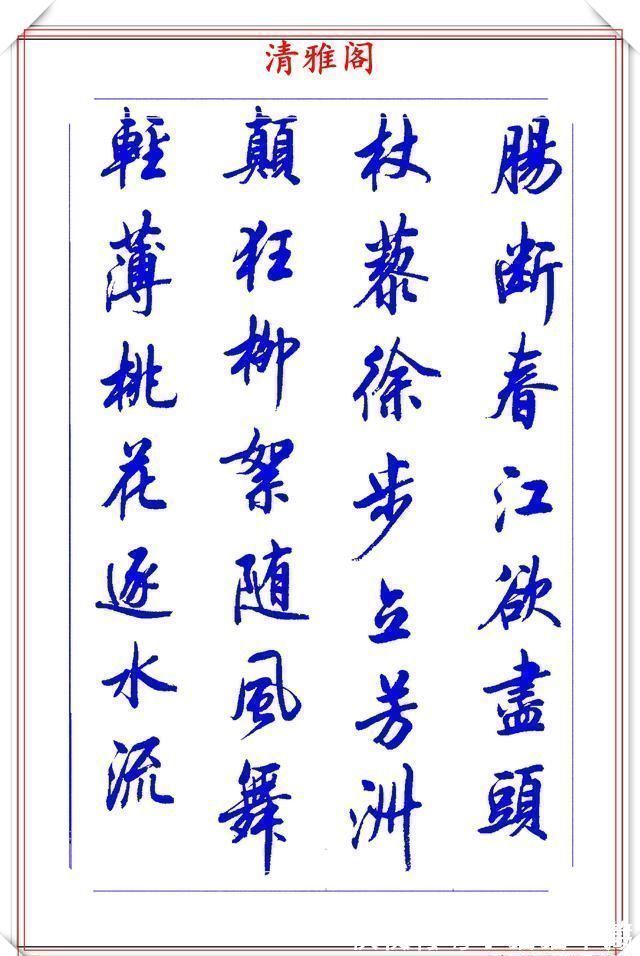 清雅阁
腸断春江欲盡頭
杖藜徐步立芳洲
顛狂柳絮随風舞
輕薄桃花逐水流